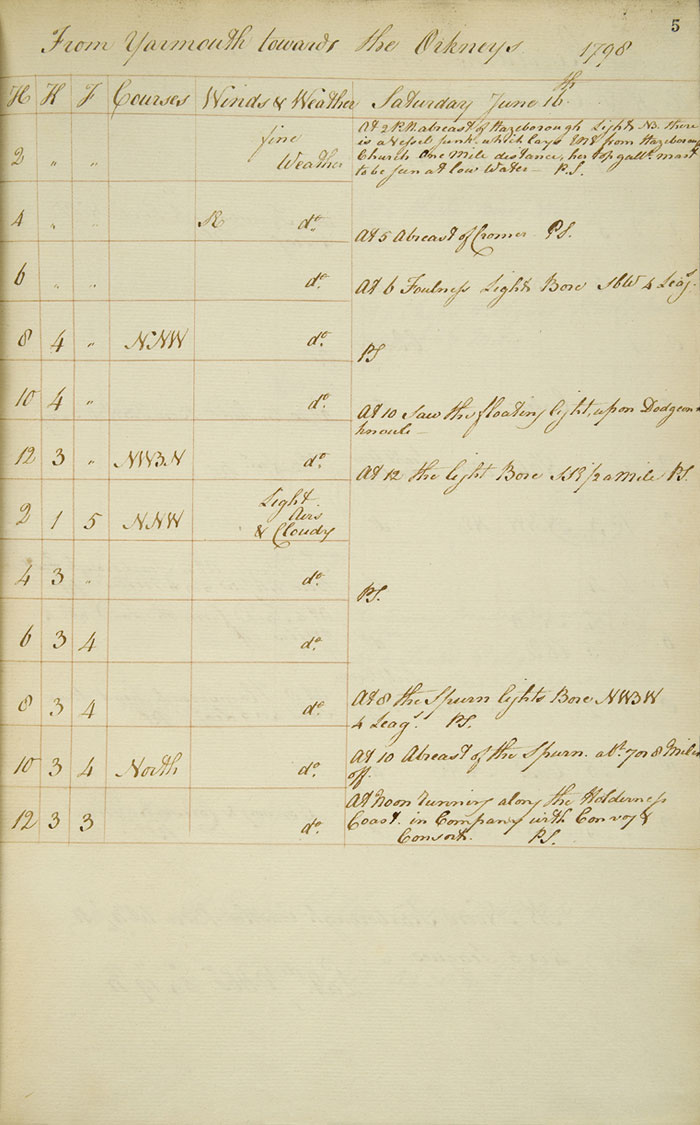 5
From Yarmouth towards the Orkneys 1798
H K F Courses Winds & Weather Saturday June 16th
2 " " fine Weather
At 2 P.M. abreast of Hazeborough Lights NB. there
is a Vessel sunk, which lays ENE from Hazeborough
Church One Mile distance, her top gallt. mast
to be seen at low Water — PS.
4 " " do.
At 5 Abreast of Cromer PS.
6 " " do.
At 6 Foulness Lights Bore SbW 4 Leags.
8 4 " NNW do.
PS
10 4 " do.
At 10 saw the floating light, upon Dodgeon
knowle —
12 3 " NWBN do.
At 12 the light Bore 1/2 a Mile PS.
2 1 5 NNW Light Airs & Cloudy
4 3 " do.
PS.
6 3 4 do.
8 3 4 do.
At 8 the Spurn lights Bore NWBW
4 Leags. PS.
10 3 4 North do.
At 10 Abreast of the Spurn. abt. 7 or 8 Miles
off
12 3 3 do.
At Noon running along the Holderness
Coast. in Company with Convoy &
Consorts. PS.